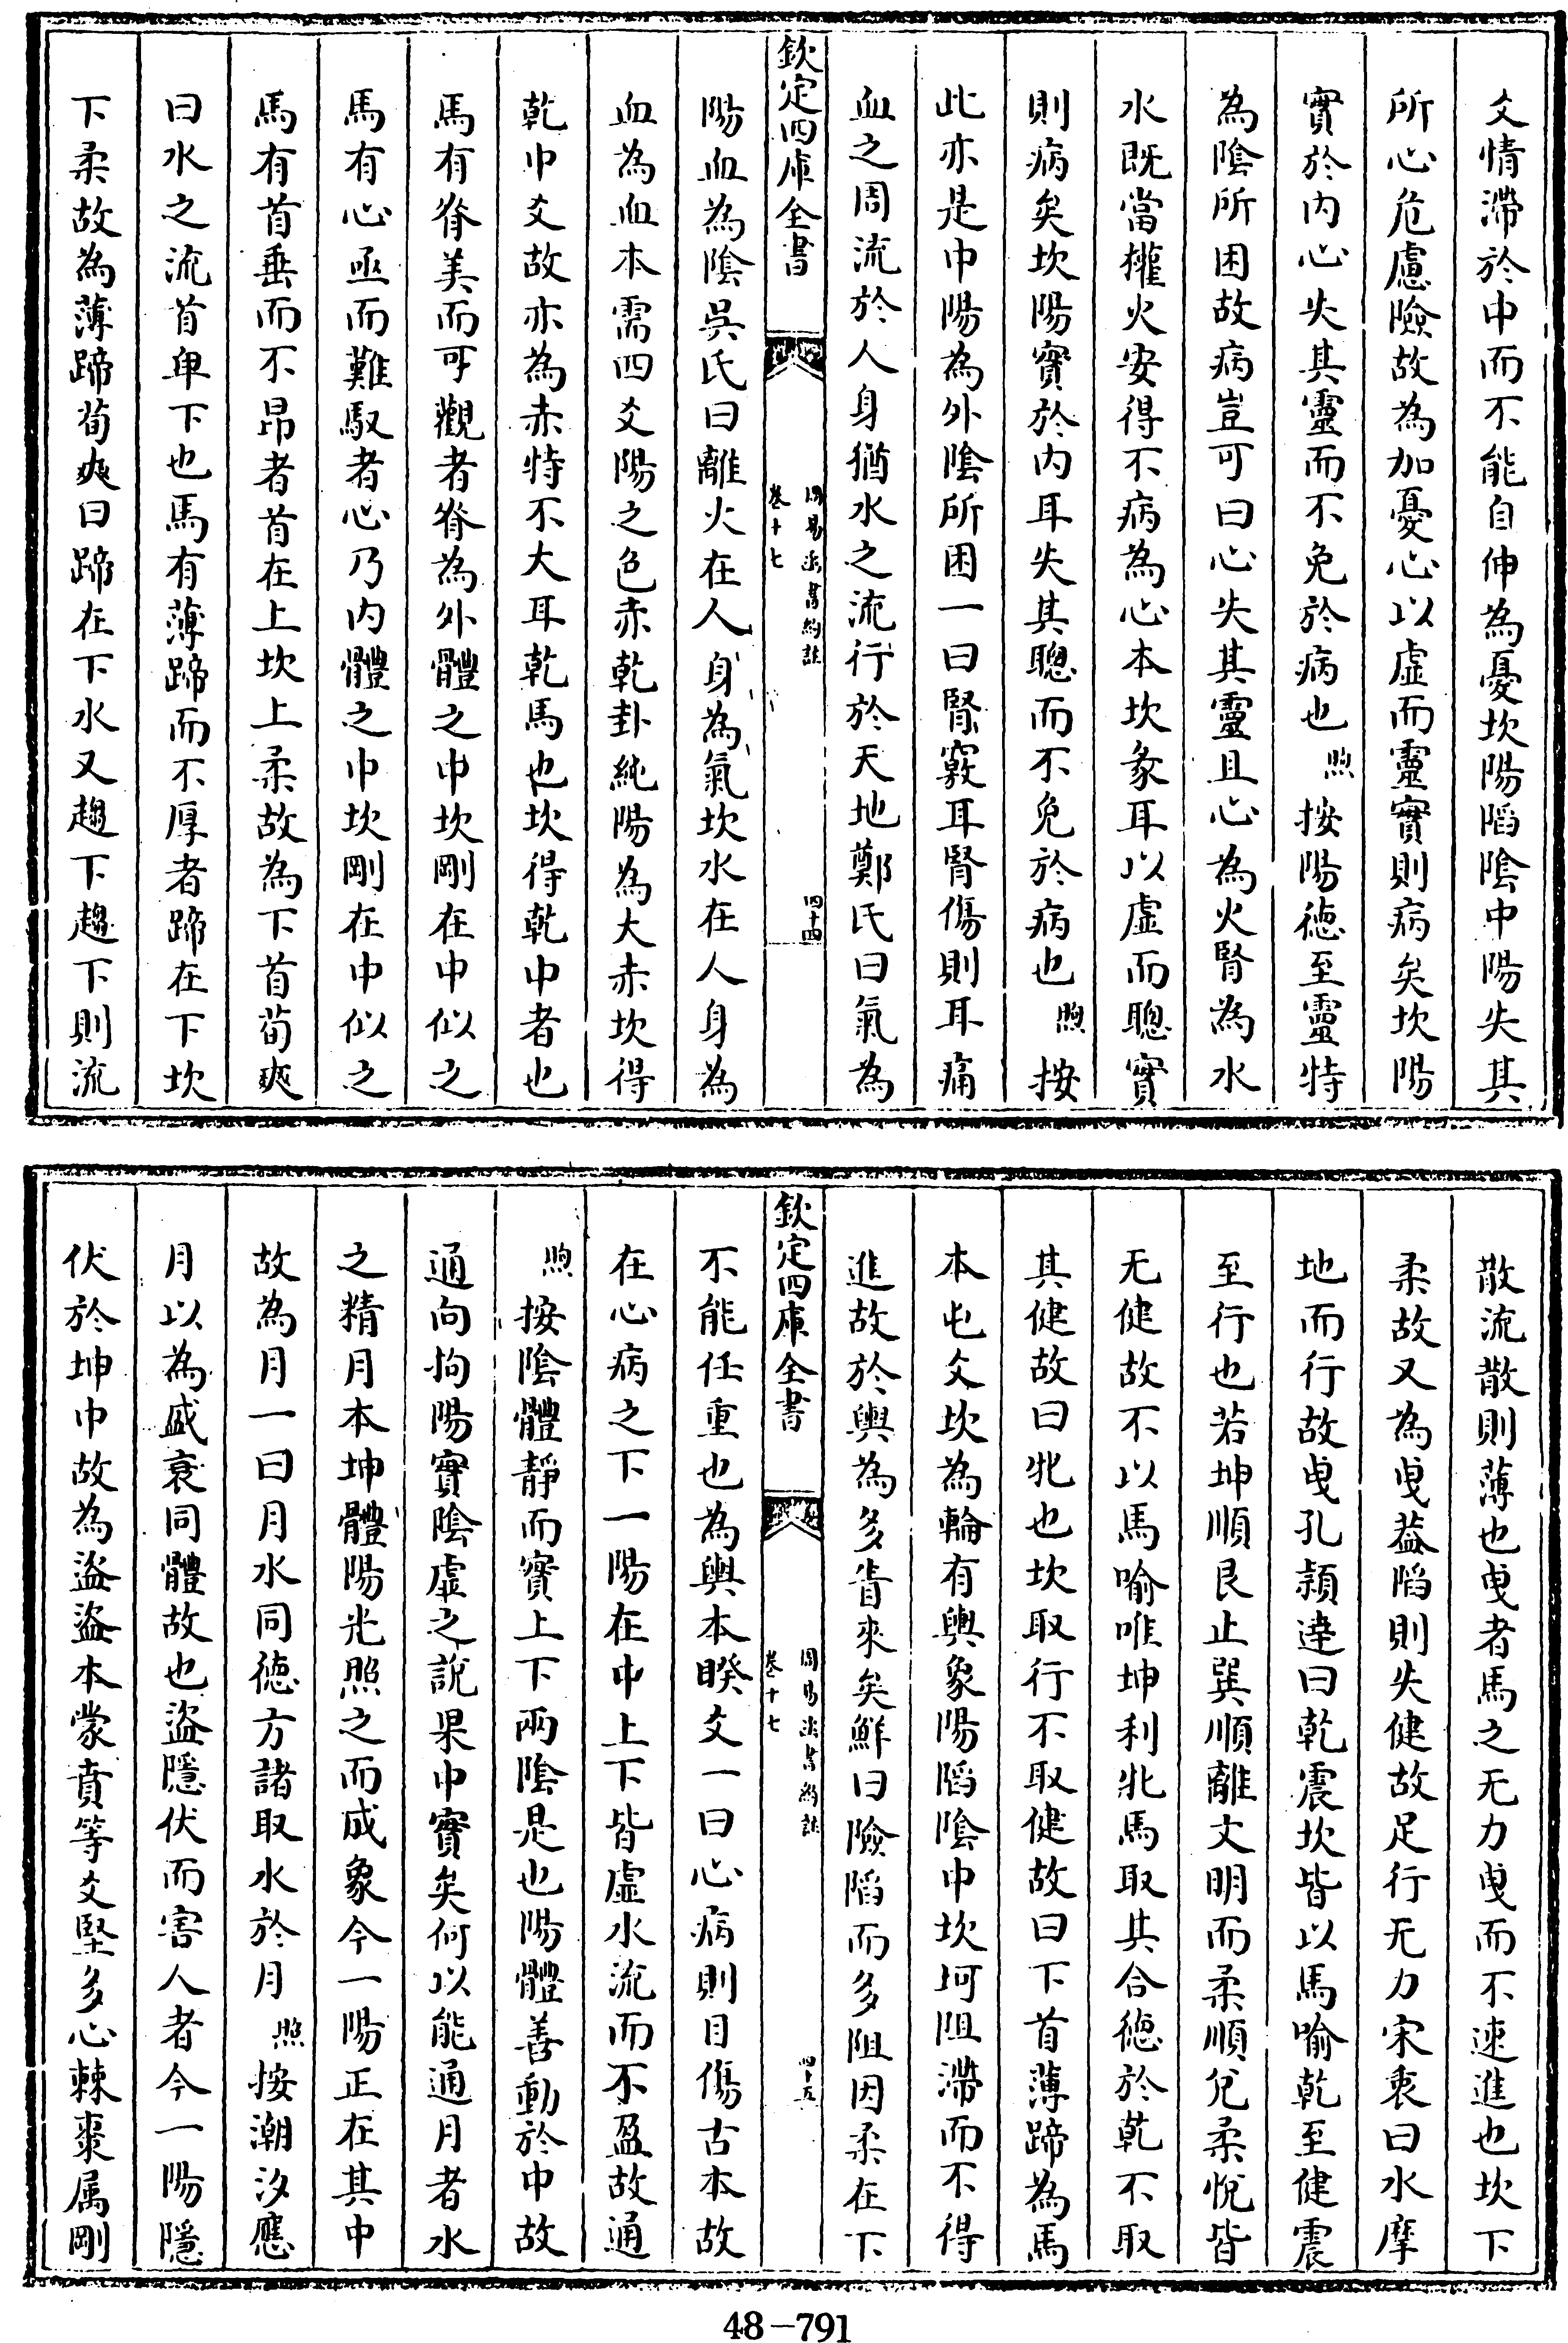 爻情滯於中而不能自伸為憂坎陽陷陰中陽失其
所心危慮險故為加憂心以虛而靈實則病矣坎陽
實於内心失其靈而不免於病也煦按陽徳至靈特
為陰所困故病豈可曰心失其靈且心為火腎為水
水既當權火安得不病為心本坎象耳以虛而聰實
則病矣坎陽實於内耳失其聰而不免於病也煦按
此亦是中陽為外陰所困一曰腎竅耳腎傷則耳痛
血之周流於人身猶水之流行於天地鄭氏曰氣為
欽定四庫全書
周易函書約註
卷十七
四十四
陽血為陰吳氏曰離火在人身為氣坎水在人身為
血為血本需四爻陽之色赤乾卦純陽為大赤坎得
乾中爻故亦為赤特不大耳乾馬也坎得乾中者也
馬有脊美而可觀者脊為外體之中坎剛在中似之
馬有心亟而難馭者心乃内體之中坎剛在中似之
馬有首垂而不昂者首在上坎上柔故為下首荀爽
曰水之流首卑下也馬有薄蹄而不厚者蹄在下坎
下柔故為薄蹄荀爽曰蹄在下水又趨下趨下則流
散流散則薄也曳者馬之无力曳而不速進也坎下
柔故又為曳葢陷則失健故足行无力宋衷曰水摩
地而行故曳孔頴達曰乾震坎皆以馬喻乾至健震
至行也若坤順艮止巽順離文明而柔順兌柔悅皆
无健故不以馬喻唯坤利牝馬取其合徳於乾不取
其健故曰牝也坎取行不取健故曰下首薄蹄為馬
本屯文坎為輪有輿象陽陷陰中坎坷阻滯而不得
進故於輿為多眚來矣鮮曰險陷而多阻因柔在下
欽定四庫全書
周易函書約註
卷十七
四十五
不能任重也為輿本睽文一曰心病則目傷古本故
在心病之下一陽在中上下皆虛水流而不盈故通
煦按陰體靜而實上下兩陰是也陽體善動於中故
通向拘陽實陰虛之說果中實矣何以能通月者水
之精月本坤體陽光照之而成象今一陽正在其中
故為月一曰月水同徳方諸取水於月煦按潮汐應
月以為盛衰同體故也盜隱伏而害人者今一陽隱
伏於坤中故為盜盜本蒙賁等爻堅多心棘棗属剛
48-791